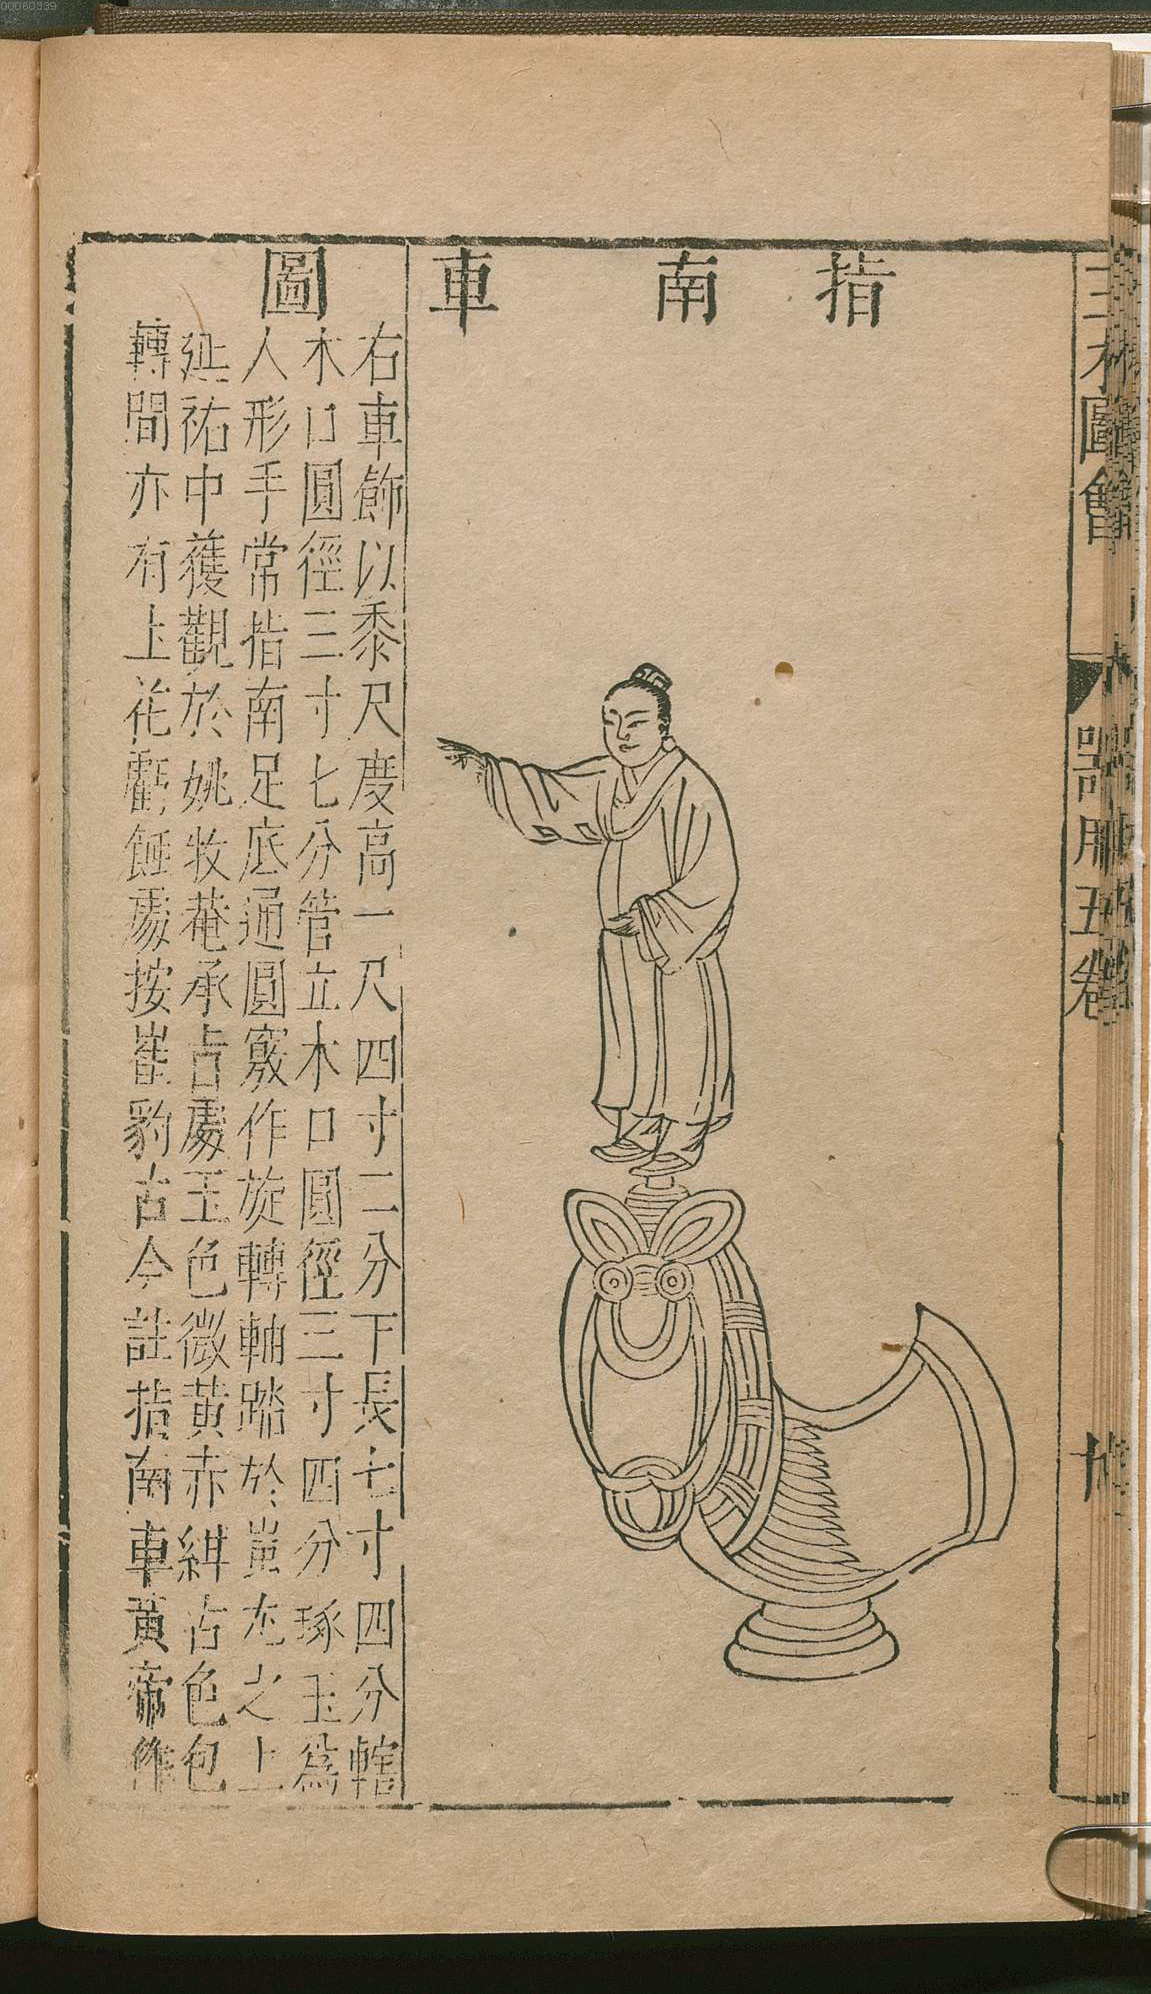 指南車圖
右車飾以黍尺度高一尺四寸二分下長七寸四分轄
木口圓徑三寸七分管立木口圓徑三寸四分琢玉爲
人形手常指南足底通圓竅作旋轉軸踏於蚩尤之上
延祐中獲觀於姚牧菴承㫖處玉色微黃赤紺古色包
轉間亦有上花虧䤃處按崔豹古今註指南車黃帝作
圖會
器用五卷
00060339